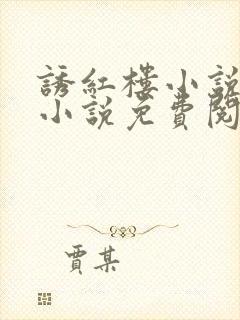 誘紅樓小說
小說免費閱
賈某